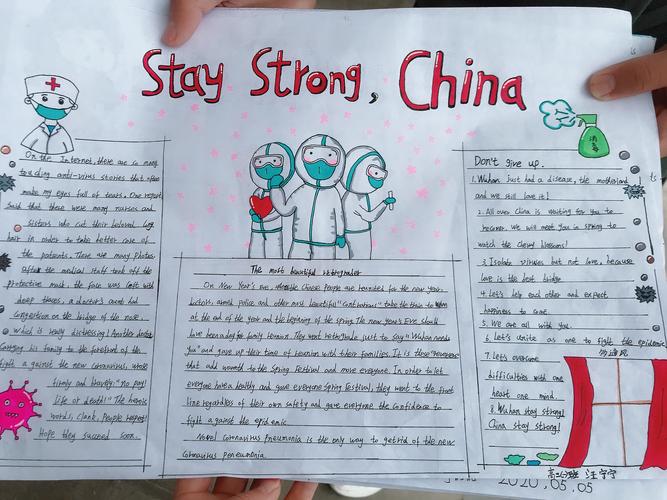 Stay Strong, China
On the Internet, there are so many
touching anti-virus stories that often
make my eyes full of tears. One report
said that there were many nurses and
sisters who cut their beloved long
hair in order to take better care of
the patients. There are many photos
after the medical staff took off the
protective mask, the face was left with
deep traces, a doctor's hand had
congestion on the bridge of the nose,
which is really distressing! Another doctor
his family to the forefront of the
fight against the new coronavirus, whose
firmly and bravely: "no pay!
life or death!" The heroic
words, clank, people respect!
Hope they succeed soon.
The most beautiful
On New Year's eve, Chinese people are reunited for the new year.
Doctors, armed police and other most beautiful " " take the train to Wuhan
at the end of the year and the beginning of the spring. The new year's Eve should
have been a day for family reunion. They went just to say "Wuhan needs
you" and gave up their time of reunion with their families. It is these " "
that add warmth to the Spring Festival and move everyone. In order to let
everyone have a healthy and safe everyone Spring Festival, they went to the front
line regardless of their own safety and gave everyone the confidence to
fight against the epidemic.
Novel Coronavirus pneumonia is the only way to get rid of the new
Coronavirus pneumonia.
消毒
Don't give up.
1. Wuhan just had a disease, the motherland
and we still love it!
2. All over China is waiting for you to
recover. We will meet you in spring to
watch the cherry blossoms!
3. Isolate viruses but not love, because
love is the best bridge
4. Let's help each other and expect
happiness to come.
5. We are all with you.
6. Let's unite as one to fight the epidemic
7. Let's overcome
difficulties with one
heart one mind.
8. Wuhan stay strong!
China stay strong!
2020.05.05